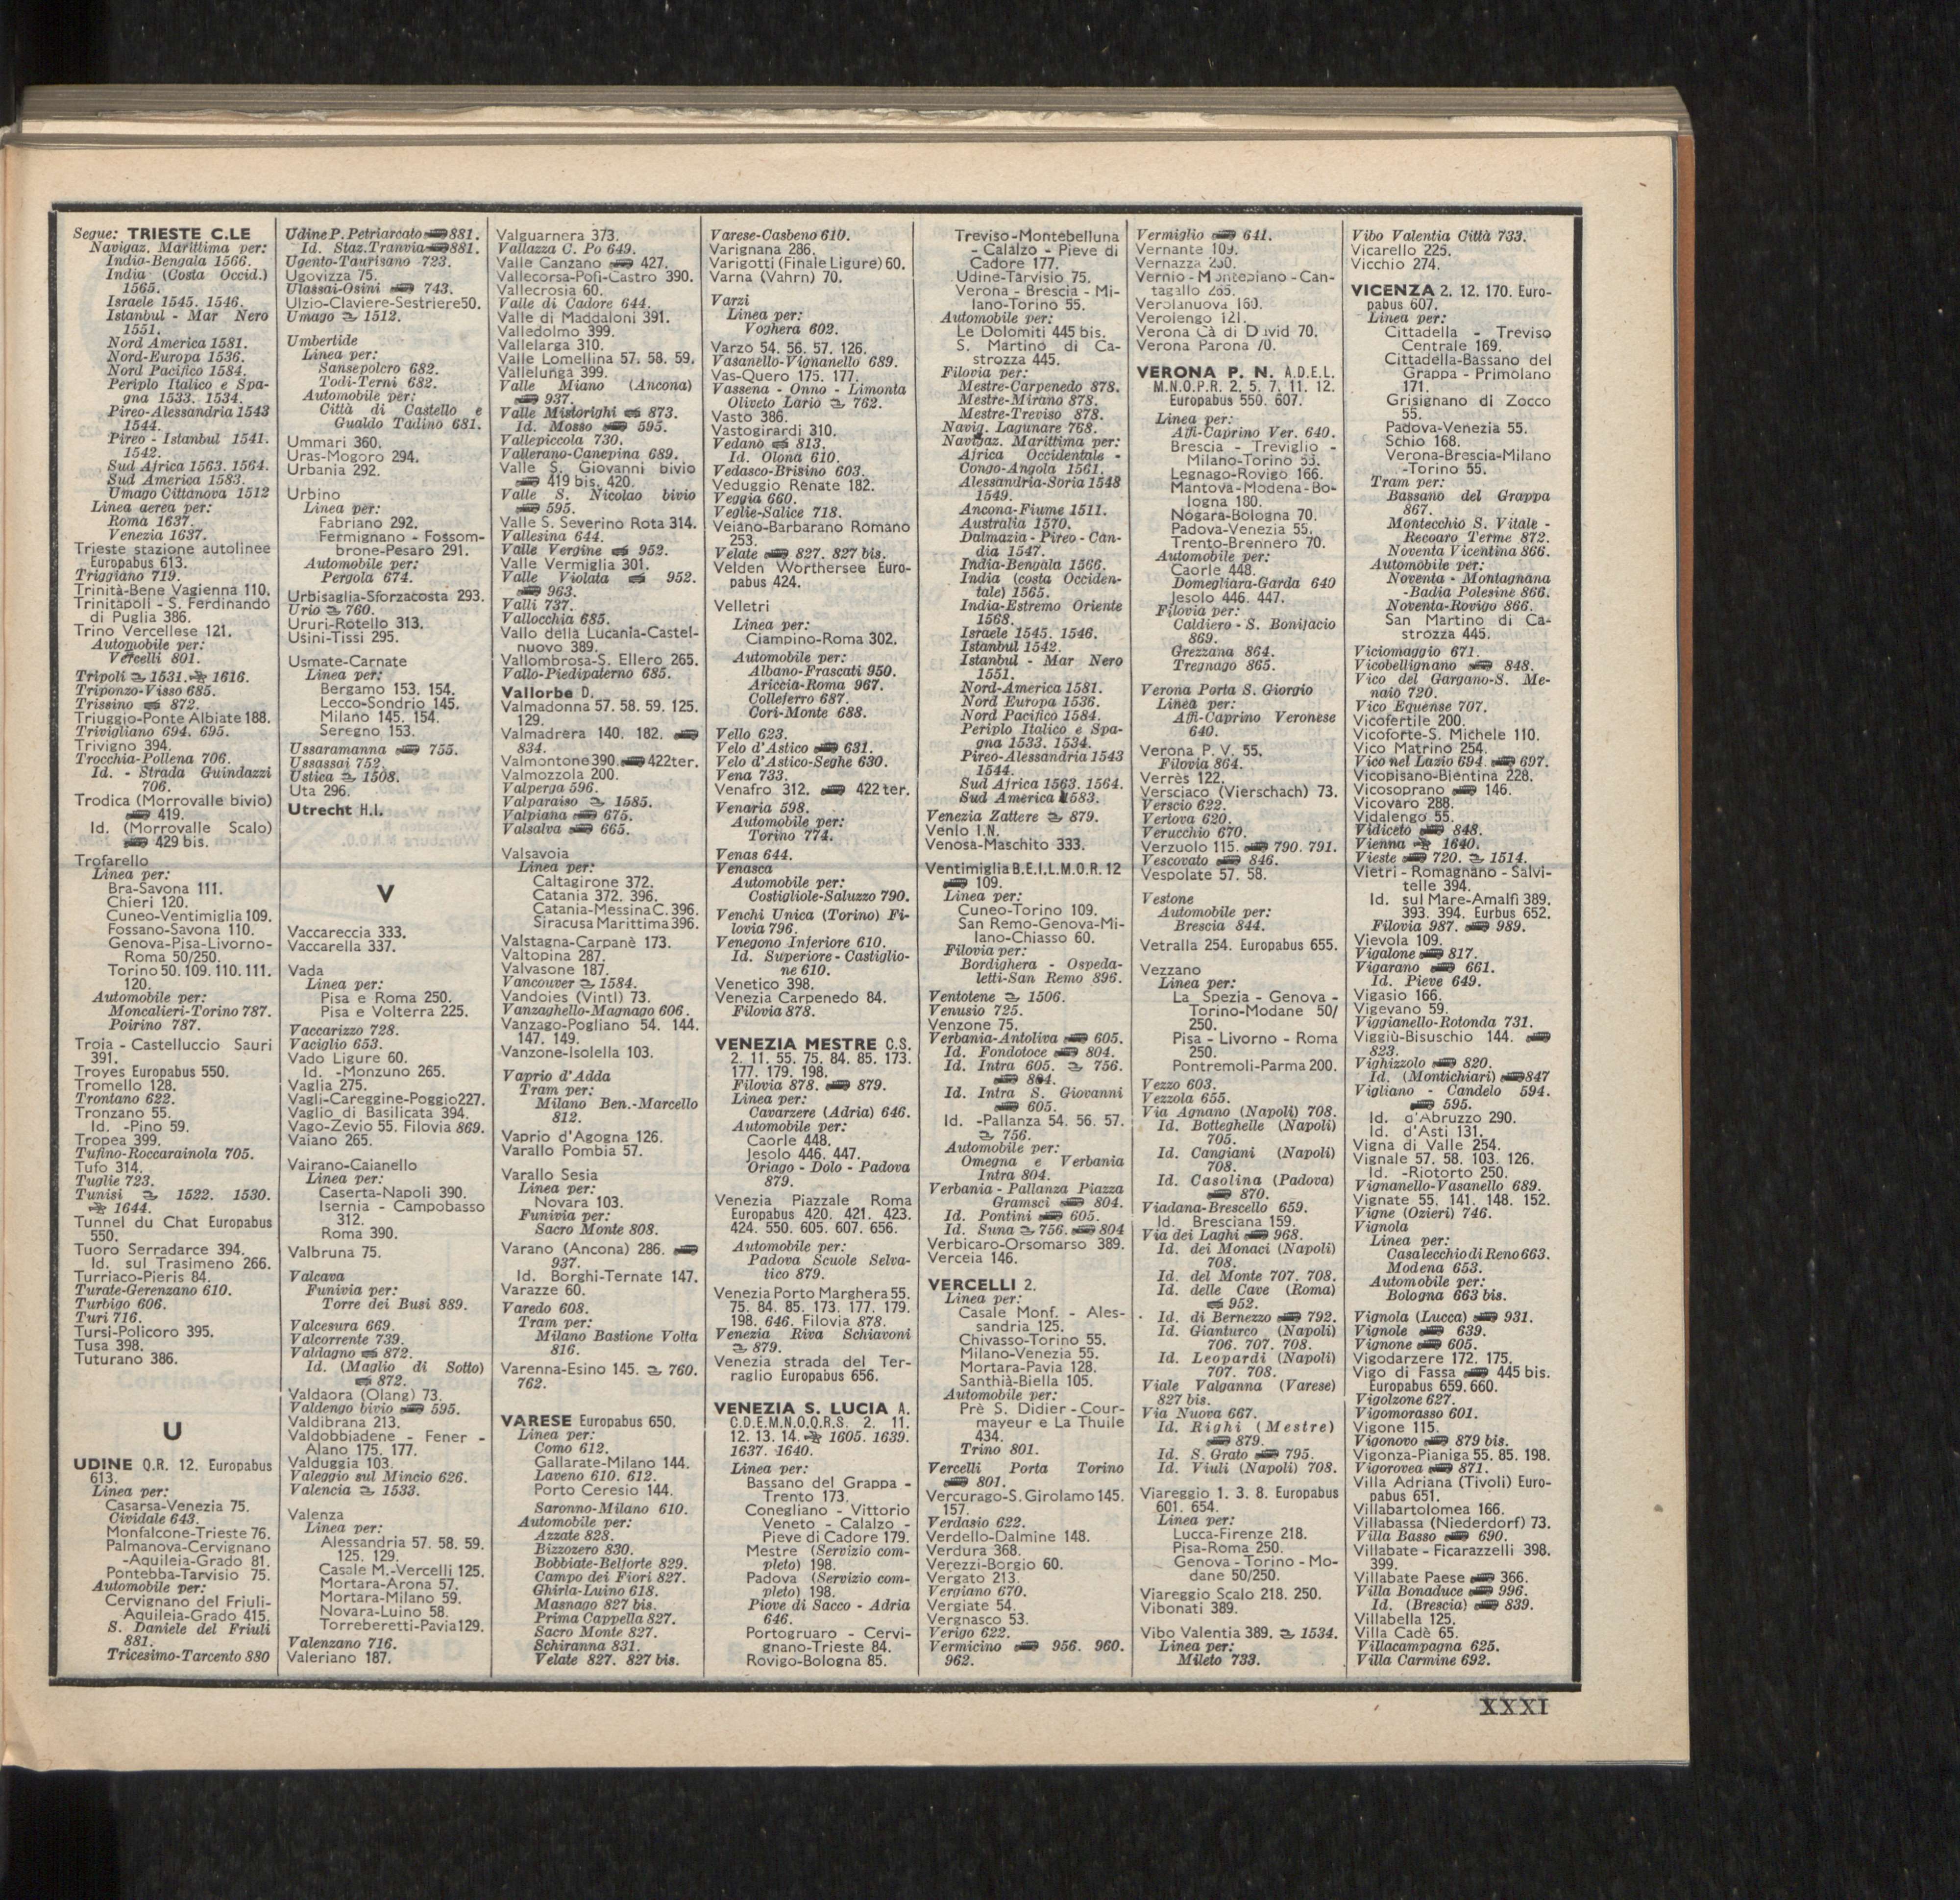 Segue: TRIESTE C.LE
Navigaz. Marittima per:
India-Bengala 1566.
India (Costa Occid.)
1565.
Israele 1545. 1546.
Istanbul - Mar Nero
1551.
Nord America 1581.
Nord-Europa 1536.
Nord Pacifico 1584.
Periplo Italico e Spa-
gna 1533. 1534.
Pireo-Alessandria 1543
1544.
Pireo - Istanbul 1541.
1542.
Sud Africa 1563. 1564.
Sud America 1583.
Umago Cittanova 1512
Linea aerea per:
Roma 1637.
Venezia 1637.
Trieste stazione autolinee
Europabus 613.
Triggiano 719.
Trinità-Bene Vagienna 110.
Trinitapoli - S. Ferdinando
di Puglia 386.
Trino Vercellese 121.
Automobile per:
Vercelli 801.
Tripoli 1531. 1616.
Triponzo-Visso 685.
Trissino 872.
Triuggio-Ponte Albiate 188.
Trivigliano 694. 695.
Trivigno 394.
Trocchia-Pollena 706.
Id. - Strada Guindazzi
706.
Trodica (Morrovalle bivio)
419.
Id. (Morrovalle Scalo)
429 bis.
Trofarello
Linea per:
Bra-Savona 111.
Chieri 120.
Cuneo-Ventimiglia 109.
Fossano-Savona 110.
Genova-Pisa-Livorno-
Roma 50/250.
Torino 50. 109. 110. 111.
120.
Automobile per:
Moncalieri-Torino 787.
Poirino 787.
Troia - Castelluccio Sauri
391.
Troyes Europabus 550.
Tromello 128.
Trontano 622.
Tronzano 55.
Id. -Pino 59.
Tropea 399.
Tufino-Roccarainola 705.
Tufo 314.
Tuglie 723.
Tunisi 1522. 1530.
1644.
Tunnel du Chat Europabus
550.
Tuoro Serradarce 394.
Id. sul Trasimeno 266.
Turriaco-Pieris 84.
Turate-Gerenzano 610.
Turbigo 606.
Turi 716.
Tursi-Policoro 395.
Tusa 398.
Tuturano 386.
U
UDINE Q.R. 12. Europabus
613.
Linea per:
Casarsa-Venezia 75.
Cividale 643.
Monfalcone-Trieste 76.
Palmanova-Cervignano
-Aquileia-Grado 81.
Pontebba-Tarvisio 75.
Automobile per:
Cervignano del Friuli-
Aquileia-Grado 415.
S. Daniele del Friuli
881.
Tricesimo-Tarcento 880
Udine P. Petriarcato 881.
Id. Staz. Tranvia 881.
Ugento-Taurisano 723.
Ugovizza 75.
Ulassai-Osini 743.
Ulzio-Claviere-Sestriere 50.
Umago 1512.
Umbertide
Linea per:
Sansepolcro 682.
Todi-Terni 682.
Automobile per:
Città di Castello e
Gualdo Tadino 681.
Ummari 360.
Uras-Mogoro 294.
Urbania 292.
Urbino
Linea per:
Fabriano 292.
Fermignano - Fossom-
brone-Pesaro 291.
Automobile per:
Pergola 674.
Urbisaglia-Sforzacosta 293.
Urio 760.
Ururi-Rotello 313.
Usini-Tissi 295.
Usmate-Carnate
Linea per:
Bergamo 153. 154.
Lecco-Sondrio 145.
Milano 145. 154.
Seregno 153.
Ussaramanna 755.
Ussassai 752.
Ustica 1508.
Uta 296.
Utrecht H.I.
V
Vaccareccia 333.
Vaccarella 337.
Vada
Linea per:
Pisa e Roma 250.
Pisa e Volterra 225.
Vaccarizzo 728.
Vaciglio 653.
Vado Ligure 60.
Id. -Monzuno 265.
Vaglia 275.
Vagli-Careggine-Poggio 227.
Vaglio di Basilicata 394.
Vago-Zevio 55. Filovia 869.
Vaiano 265.
Vairano-Caianello
Linea per:
Caserta-Napoli 390.
Isernia - Campobasso
312.
Roma 390.
Valbruna 75.
Valcava
Funivia per:
Torre dei Busi 889.
Valcesura 669.
Valcorrente 739.
Valdagno 872.
Id. (Maglio di Sotto)
872.
Valdaora (Olang) 73.
Valdengo bivio 595.
Valdibrana 213.
Valdobbiadene - Fener -
Alano 175. 177.
Valduggia 103.
Valeggio sul Mincio 626.
Valencia 1533.
Valenza
Linea per:
Alessandria 57. 58. 59.
125. 129.
Casale M.-Vercelli 125.
Mortara-Arona 57.
Mortara-Milano 59.
Novara-Luino 58.
Torreberetti-Pavia 129.
Valenzano 716.
Valeriano 187.
Valguarnera 373.
Vallazza C. Po 649.
Valle Canzano 427.
Vallecorsa-Pofi-Castro 390.
Vallecrosia 60.
Valle di Cadore 644.
Valle di Maddaloni 391.
Valledolmo 399.
Vallelarga 310.
Valle Lomellina 57. 58. 59.
Vallelunga 399.
Valle Miano (Ancona)
937.
Valle Mistorighi 873.
Id. Mosso 595.
Vallepiccola 730.
Vallerano-Canepina 689.
Valle S. Giovanni bivio
419 bis. 420.
Valle S. Nicolao bivio
595.
Valle S. Severino Rota 314.
Vallesina 644.
Valle Vergine 952.
Valle Vermiglia 301.
Valle Violata 952.
963.
Valli 737.
Vallocchia 685.
Vallo della Lucania-Castel-
nuovo 389.
Vallombrosa-S. Ellero 265.
Vallo-Piedipaterno 685.
Vallorbe D.
Valmadonna 57. 58. 59. 125.
129.
Valmadrera 140. 182.
834.
Valmontone 390. 422ter.
Valmozzola 200.
Valperga 596.
Valparaiso 1585.
Valpiana 675.
Valsalva 665.
Valsavoia
Linea per:
Caltagirone 372.
Catania 372. 396.
Catania-Messina C. 396.
Siracusa Marittima 396.
Valstagna-Carpanè 173.
Valtopina 287.
Valvasone 187.
Vancouver 1584.
Vandoies (Vintl) 73.
Vanzaghello-Magnago 606.
Vanzago-Pogliano 54. 144.
147. 149.
Vanzone-Isolella 103.
Vaprio d'Adda
Tram per:
Milano Ben.-Marcello
812.
Vaprio d'Agogna 126.
Varallo Pombia 57.
Varallo Sesia
Linea per:
Novara 103.
Funivia per:
Sacro Monte 808.
Varano (Ancona) 286.
937.
Id. Borghi-Ternate 147.
Varazze 60.
Varedo 608.
Tram per:
Milano Bastione Volta
816.
Varenna-Esino 145. 760.
762.
VARESE Europabus 650.
Linea per:
Como 612.
Gallarate-Milano 144.
Laveno 610. 612.
Porto Ceresio 144.
Saronno-Milano 610.
Automobile per:
Azzate 828.
Bizzozero 830.
Bobbiate-Belforte 829.
Campo dei Fiori 827.
Ghirla-Luino 618.
Masnago 827 bis.
Prima Cappella 827.
Sacro Monte 827.
Schiranna 831.
Velate 827. 827 bis.
Varese-Casbeno 610.
Varignana 286.
Varigotti (Finale Ligure) 60.
Varna (Vahrn) 70.
Varzi
Linea per:
Voghera 602.
Varzo 54. 56. 57. 126.
Vasanello-Vignanello 689.
Vas-Quero 175. 177.
Vassena - Onno - Limonta
Oliveto Lario 762.
Vasto 386.
Vastogirardi 310.
Vedano 813.
Id. Olona 610.
Vedasco-Brisino 603.
Veduggio Renate 182.
Veggia 660.
Veglie-Salice 718.
Veiano-Barbarano Romano
253.
Velate 827. 827 bis.
Velden Worthersee Euro-
pabus 424.
Velletri
Linea per:
Ciampino-Roma 302.
Automobile per:
Albano-Frascati 950.
Ariccia-Roma 967.
Colleferro 687.
Cori-Monte 688.
Vello 623.
Velo d'Astico 631.
Velo d'Astico-Seghe 630.
Vena 733.
Venafro 312. 422 ter.
Venaria 598.
Automobile per:
Torino 774.
Venas 644.
Venasca
Automobile per:
Costigliole-Saluzzo 790.
Venchi Unica (Torino) Fi-
lovia 796.
Venegono Inferiore 610.
Id. Superiore - Castiglio-
ne 610.
Venetico 398.
Venezia Carpenedo 84.
Filovia 878.
VENEZIA MESTRE C.S.
2. 11. 55. 75. 84. 85. 173.
177. 179. 198.
Filovia 878. 879.
Linea per:
Cavarzere (Adria) 646.
Automobile per:
Caorle 448.
Jesolo 446. 447.
Oriago - Dolo - Padova
879.
Venezia Piazzale Roma
Europabus 420. 421. 423.
424. 550. 605. 607. 656.
Automobile per:
Padova Scuole Selva-
tico 879.
Venezia Porto Marghera 55.
75. 84. 85. 173. 177. 179.
198. 646. Filovia 878.
Venezia Riva Schiavoni
879.
Venezia strada del Ter-
raglio Europabus 656.
VENEZIA S. LUCIA A.
C.D.E.M.N.O.Q.R.S. 2. 11.
12. 13. 14. 1605. 1639.
1637. 1640.
Linea per:
Bassano del Grappa -
Trento 173.
Conegliano - Vittorio
Veneto - Calalzo -
Pieve di Cadore 179.
Mestre (Servizio com-
pleto) 198.
Padova (Servizio com-
pleto) 198.
Piove di Sacco - Adria
646.
Portogruaro - Cervi-
gnano-Trieste 84.
Rovigo-Bologna 85.
Treviso-Montebelluna
- Calalzo - Pieve di
Cadore 177.
Udine-Tarvisio 75.
Verona - Brescia - Mi-
lano-Torino 55.
Automobile per:
Le Dolomiti 445 bis.
S. Martino di Ca-
strozza 445.
Filovia per:
Mestre-Carpenedo 878.
Mestre-Mirano 878.
Mestre-Treviso 878.
Navig. Lagunare 768.
Navigaz. Marittima per:
Africa Occidentale -
Congo-Angola 1561.
Alessandria-Soria 1548
1549.
Ancona-Fiume 1511.
Australia 1570.
Dalmazia - Pireo - Can-
dia 1547.
India-Bengala 1566.
India (costa Occiden-
tale) 1565.
India-Estremo Oriente
1568.
Israele 1545. 1546.
Istanbul 1542.
Istanbul - Mar Nero
1551.
Nord-America 1581.
Nord Europa 1536.
Nord Pacifico 1584.
Periplo Italico e Spa-
gna 1533. 1534.
Pireo-Alessandria 1543
1544.
Sud Africa 1563. 1564.
Sud America 1583.
Venezia Zattere 879.
Venlo I.N.
Venosa-Maschito 333.
Ventimiglia B.E.I.L.M.O.R. 12
109.
Linea per:
Cuneo-Torino 109.
San Remo-Genova-Mi-
lano-Chiasso 60.
Filovia per:
Bordighera - Ospeda-
letti-San Remo 896.
Ventotene 1506.
Venusio 725.
Venzone 75.
Verbania-Antoliva 605.
Id. Fondotoce 804.
Id. Intra 605. 756.
804.
Id. Intra S. Giovanni
605.
Id. -Pallanza 54. 56. 57.
756.
Automobile per:
Omegna e Verbania
Intra 804.
Verbania - Pallanza Piazza
Gramsci 804.
Id. Pontini 605.
Id. Suna 756. 804
Verbicaro-Orsomarso 389.
Verceia 146.
VERCELLI 2.
Linea per:
Casale Monf. - Ales-
sandria 125.
Chivasso-Torino 55.
Milano-Venezia 55.
Mortara-Pavia 128.
Santhià-Biella 105.
Automobile per:
Prè S. Didier - Cour-
mayeur e La Thuile
434.
Trino 801.
Vercelli Porta Torino
801.
Vercurago-S. Girolamo 145.
157.
Verdasio 622.
Verdello-Dalmine 148.
Verdura 368.
Verezzi-Borgio 60.
Vergato 213.
Vergiano 670.
Vergiate 54.
Vergnasco 53.
Verigo 622.
Vermicino 956. 960.
962.
Vermiglio 641.
Vernante 109.
Vernazza 250.
Vernio - Montepiano - Can-
tagallo 265.
Verolanuova 160.
Verolengo 121.
Verona Cà di David 70.
Verona Parona 70.
VERONA P. N. A.D.E.L.
M.N.O.P.R. 2. 5. 7. 11. 12.
Europabus 550. 607.
Linea per:
Affi-Caprino Ver. 640.
Brescia - Treviglio -
Milano-Torino 55.
Legnago-Rovigo 166.
Mantova-Modena-Bo-
logna 180.
Nogara-Bologna 70.
Padova-Venezia 55.
Trento-Brennero 70.
Automobile per:
Caorle 448.
Domegliara-Garda 640
Jesolo 446. 447.
Filovia per:
Caldiero - S. Bonifacio
869.
Grezzana 864.
Tregnago 865.
Verona Porta S. Giorgio
Linea per:
Affi-Caprino Veronese
640.
Verona P. V. 55.
Filovia 864.
Verrès 122.
Versciaco (Vierschach) 73.
Verscio 622.
Vertova 620.
Verucchio 670.
Verzuolo 115. 790. 791.
Vescovato 846.
Vespolate 57. 58.
Vestone
Automobile per:
Brescia 844.
Vetralla 254. Europabus 655.
Vezzano
Linea per:
La Spezia - Genova -
Torino-Modane 50/
250.
Pisa - Livorno - Roma
250.
Pontremoli-Parma 200.
Vezzo 603.
Vezzola 655.
Via Agnano (Napoli) 708.
Id. Botteghelle (Napoli)
705.
Id. Cangiani (Napoli)
708.
Id. Casolina (Padova)
870.
Viadana-Brescello 659.
Id. Bresciana 159.
Via dei Laghi 968.
Id. dei Monaci (Napoli)
708.
Id. del Monte 707. 708.
Id. delle Cave (Roma)
952.
Id. di Bernezzo 792.
Id. Gianturco (Napoli)
706. 707. 708.
Id. Leopardi (Napoli)
707. 708.
Viale Valganna (Varese)
827 bis.
Via Nuova 667.
Id. Righi (Mestre)
879.
Id. S. Grato 795.
Id. Viuli (Napoli) 708.
Viareggio 1. 3. 8. Europabus
601. 654.
Linea per:
Lucca-Firenze 218.
Pisa-Roma 250.
Genova - Torino - Mo-
dane 50/250.
Viareggio Scalo 218. 250.
Vibonati 389.
Vibo Valentia 389. 1534.
Linea per:
Mileto 733.
Vibo Valentia Città 733.
Vicarello 225.
Vicchio 274.
VICENZA 2. 12. 170. Euro-
pabus 607.
Linea per:
Cittadella - Treviso
Centrale 169.
Cittadella-Bassano del
Grappa - Primolano
171.
Grisignano di Zocco
55.
Padova-Venezia 55.
Schio 168.
Verona-Brescia-Milano
-Torino 55.
Tram per:
Bassano del Grappa
867.
Montecchio S. Vitale -
Recoaro Terme 872.
Noventa Vicentina 866.
Automobile per:
Noventa - Montagnana
-Badia Polesine 866.
Noventa-Rovigo 866.
San Martino di Ca-
strozza 445.
Viciomaggio 671.
Vicobellignano 848.
Vico del Gargano-S. Me-
naio 720.
Vico Equense 707.
Vicofertile 200.
Vicoforte-S. Michele 110.
Vico Matrino 254.
Vico nel Lazio 694. 697.
Vicopisano-Bientina 228.
Vicosoprano 146.
Vicovaro 288.
Vidalengo 55.
Vidiceto 848.
Vienna 1640.
Vieste 720. 1514.
Vietri - Romagnano - Salvi-
telle 394.
Id. sul Mare-Amalfi 389.
393. 394. Eurbus 652.
Filovia 987. 989.
Vievola 109.
Vigalone 817.
Vigarano 661.
Id. Pieve 649.
Vigasio 166.
Vigevano 59.
Viggianello-Rotonda 731.
Viggiù-Bisuschio 144.
823.
Vighizzolo 820.
Id. (Montichiari) 847
Vigliano - Candelo 594.
595.
Id. d'Abruzzo 290.
Id. d'Asti 131.
Vigna di Valle 254.
Vignale 57. 58. 103. 126.
Id. -Riotorto 250.
Vignanello-Vasanello 689.
Vignate 55. 141. 148. 152.
Vigne (Ozieri) 746.
Vignola
Linea per:
Casalecchio di Reno 663.
Modena 653.
Automobile per:
Bologna 663 bis.
Vignola (Lucca) 931.
Vignole 639.
Vignone 605.
Vigodarzere 172. 175.
Vigo di Fassa 445 bis.
Europabus 659. 660.
Vigolzone 627.
Vigomorasso 601.
Vigone 115.
Vigonovo 879 bis.
Vigonza-Pianiga 55. 85. 198.
Vigorovea 871.
Villa Adriana (Tivoli) Euro-
pabus 651.
Villabartolomea 166.
Villabassa (Niederdorf) 73.
Villa Basso 690.
Villabate - Ficarazzelli 398.
399.
Villabate Paese 366.
Villa Bonaduce 996.
Id. (Brescia) 839.
Villabella 125.
Villa Cadè 65.
Villacampagna 625.
Villa Carmine 692.
XXXI